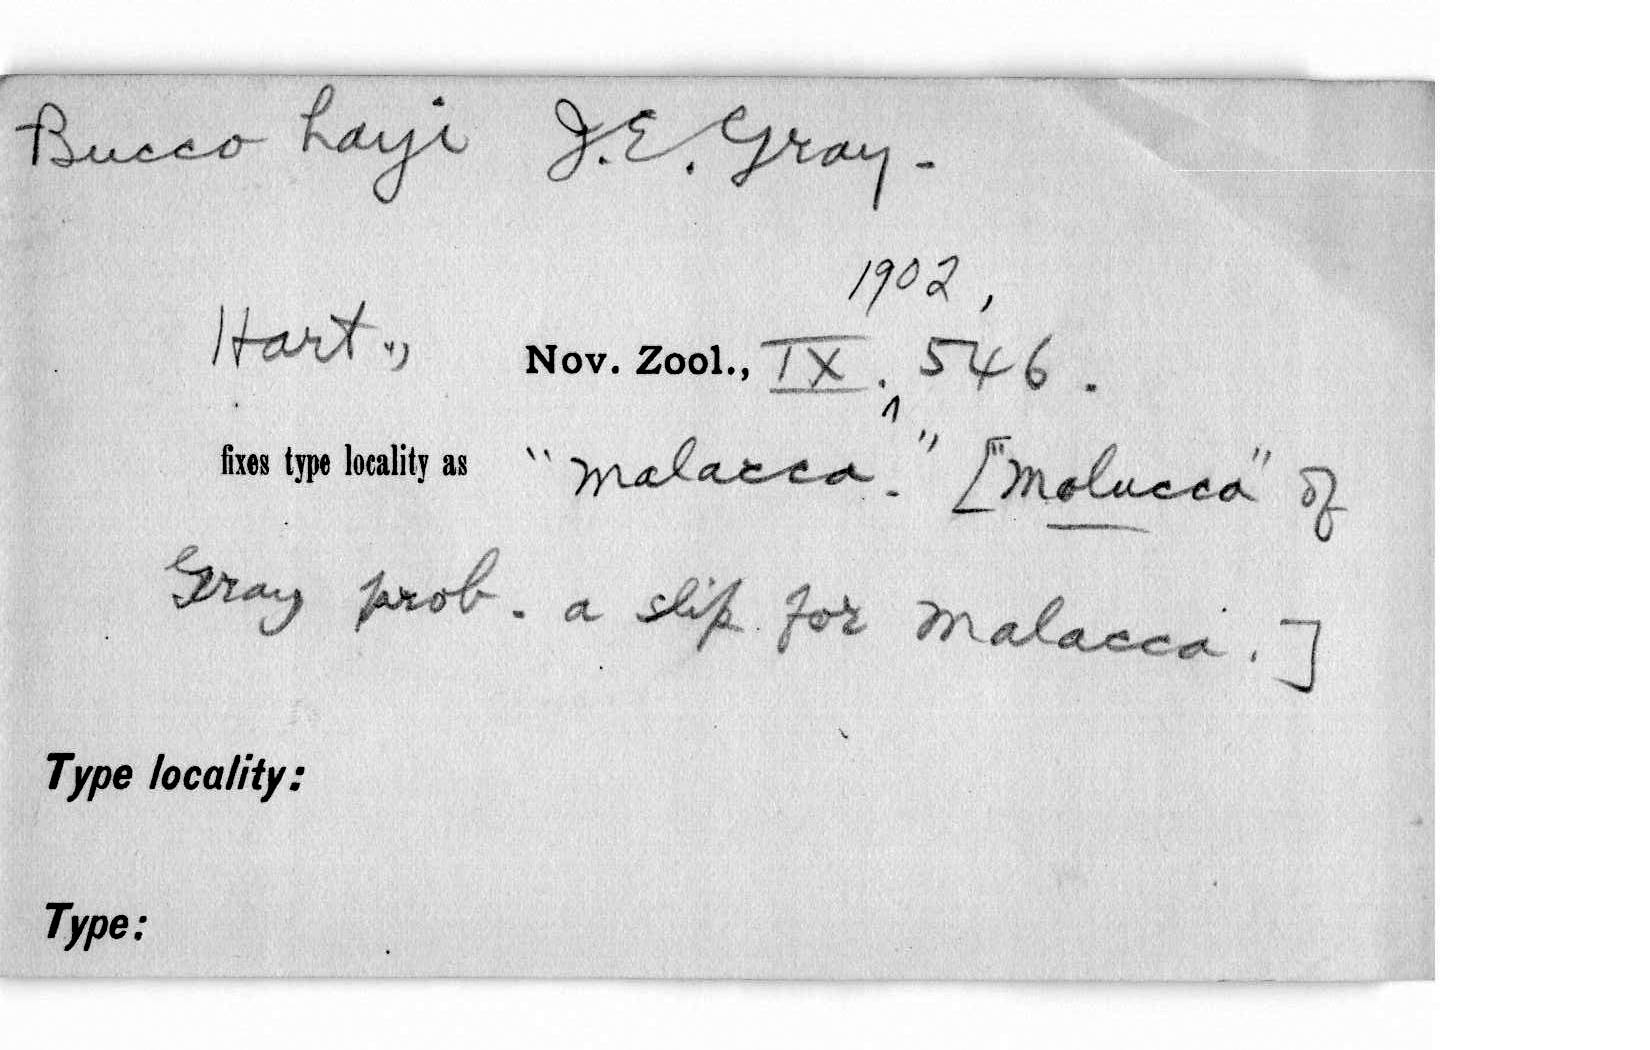 Bucco hayi J.E. Gray.
Hart., Nov. Zool., IX. 1902, 546.
fixes type locality as "Malacca." ["Molucca" of
Gray prob. a slip for Malacca.]
Type locality:
Type: